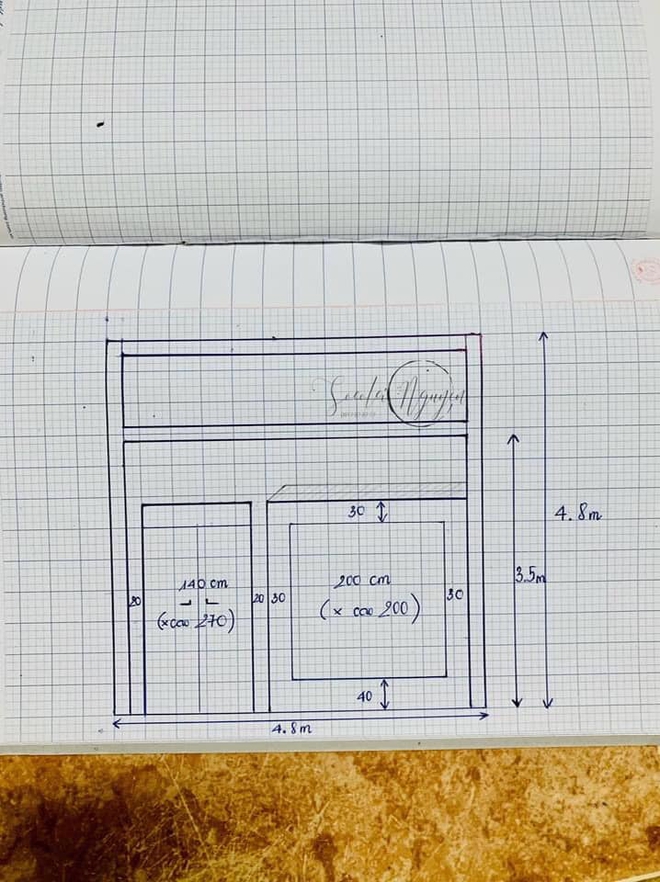 Nguyen
30
4.8m
3.5m
140 cm
(x cao 270)
20
20
30
200 cm
(x cao 200)
30
40
4.8m